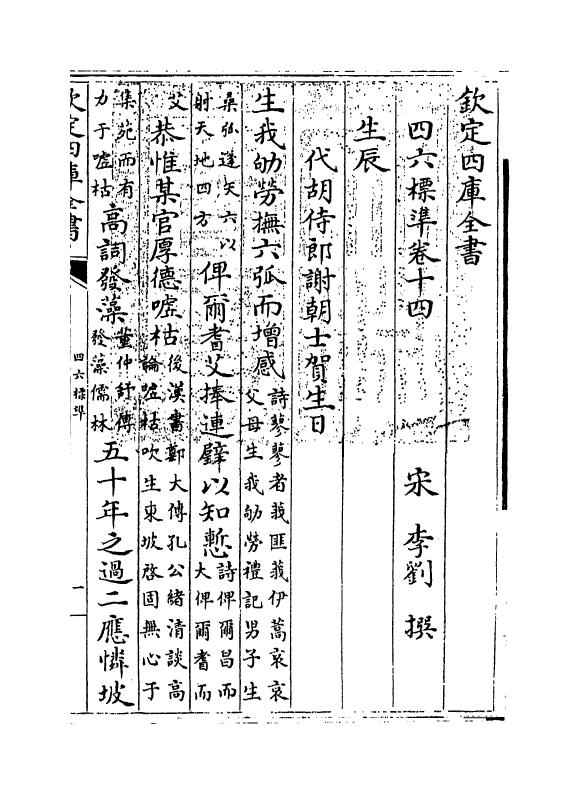 欽定四庫全書
四六標準卷十四
宋 李劉 撰
生辰
代胡侍郎謝朝士賀生日
生我劬勞撫六弧而增感詩蓼蓼者莪匪莪伊蒿哀哀父母生我劬勞禮記男子生
桑弧蓬矢六以射天地四方俾爾耆艾捧連璧以知慙詩俾爾昌而大俾爾耆而
艾恭惟某官厚德噓枯後漢書鄭大傅孔公緒清談高論噓枯吹生東坡啓固無心于
集苑而有力于噓枯高詞發藻董仲舒傳發藻儒林五十年之過二應憐坡
欽定四庫全書
四六標準
一